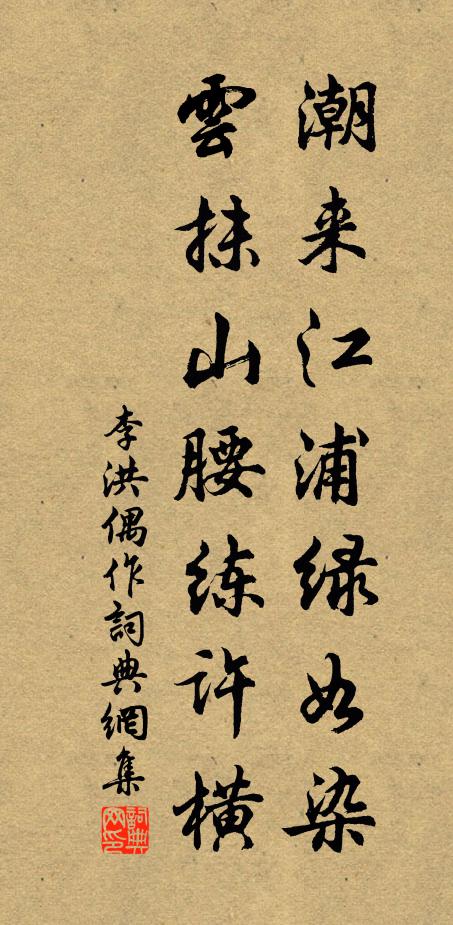 潮来江浦绿如染
雲抹山腰练許横
李洪偶作詞典網集
詞典网印